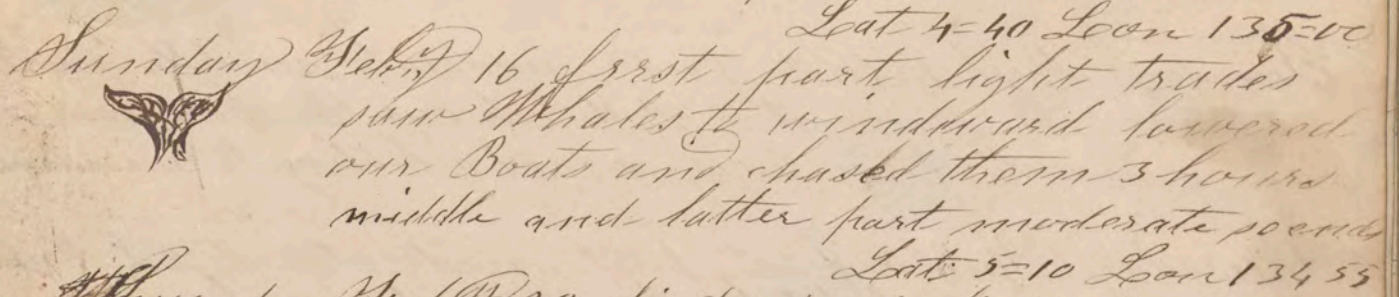 Lat 4=40 Lon 135=00
Sunday Feby 16 first part light trades
saw Whales to windward lowered
our Boats and chased them 3 hours
middle and latter part moderate
Lat 5=10 Lon 134 55